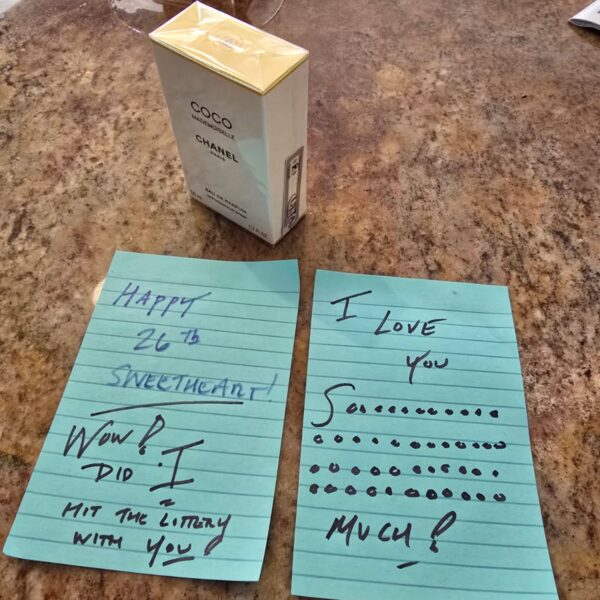 COCO
MADEMOISELLE
CHANEL
PARIS
EAU DE PARFUM
HAPPY
26 TH
SWEETHEART!
WOW!
DID I
HIT THE LOTTERY
WITH YOU!
I LOVE
YOU
Soooooooooo
ooooooooooooo
ooooooooooooo
ooooooooooooo
MUCH!